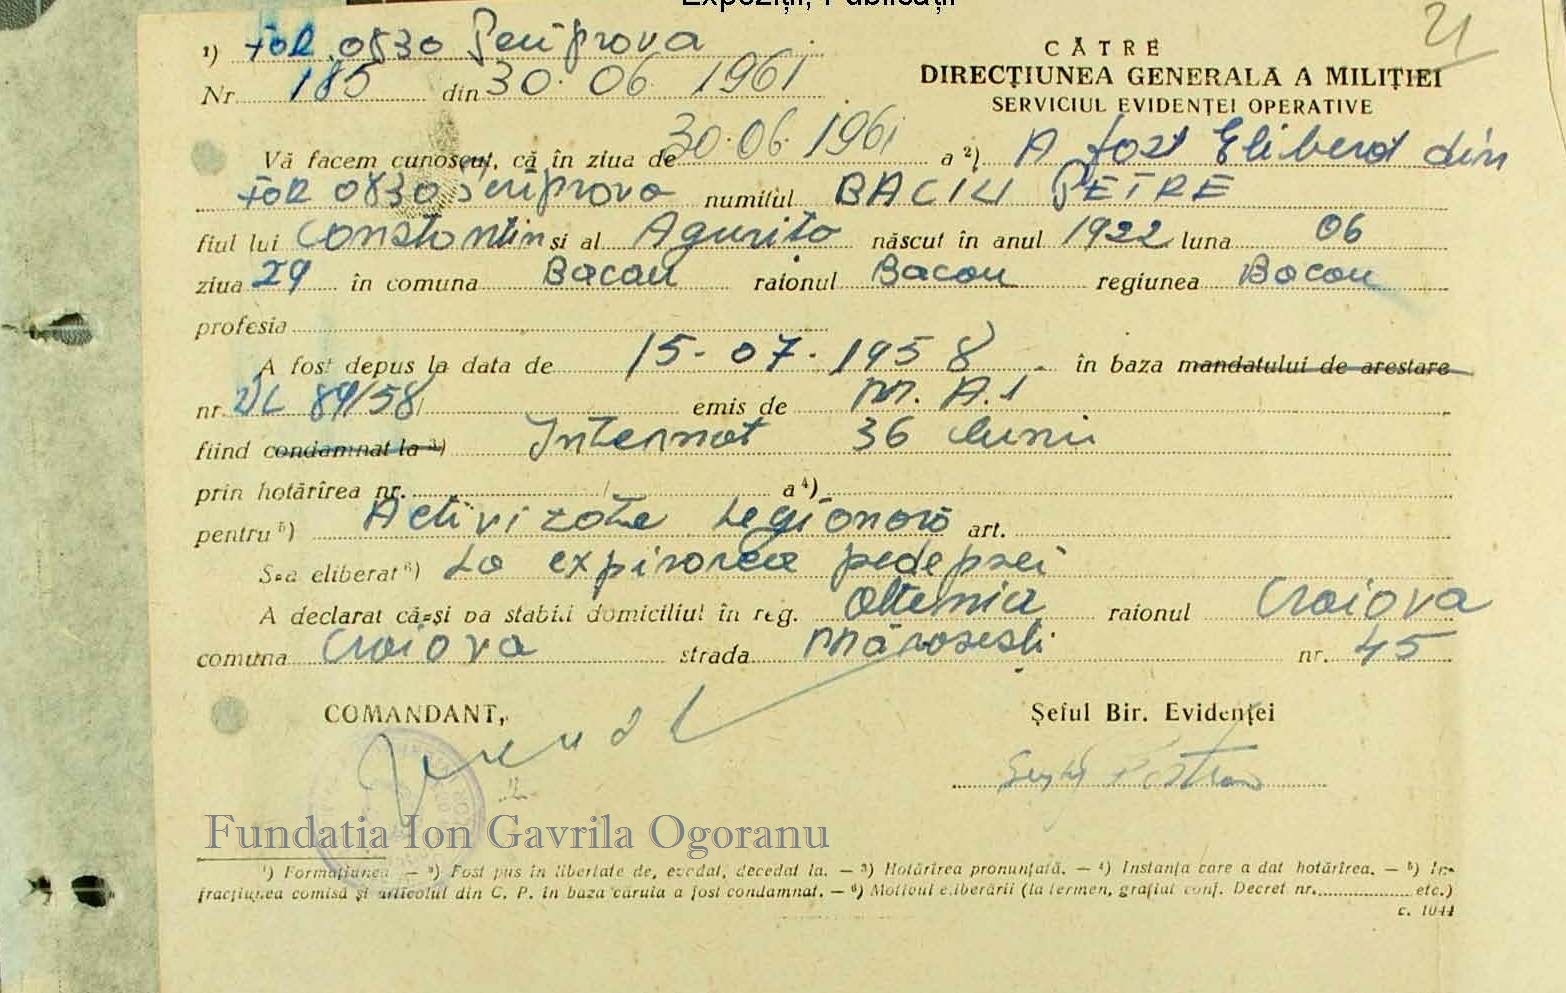 Expoziții, Publicații
21
1) FOR 0830 Periprava
Nr 185 din 30.06 1961
CĂTRE
DIRECȚIUNEA GENERALĂ A MILIȚIEI
SERVICIUL EVIDENȚEI OPERATIVE
Vă facem cunoscut, că în ziua de 30.06.1961 a 2) A fost Eliberat din
FOR 0830 Periprava numitul BACIU PETRE
fiul lui Constantin și al Agurița născut în anul 1922 luna 06
ziua 29 în comuna Bacau raionul Bacau regiunea Bacau
profesia
A fost depus la data de 15-07-1958 în baza mandatului de arestare
nr. 89/58 emis de M.A.I
fiind condamnat la 3) Internat 36 luni
prin hotărîrea nr. a 4)
pentru 5) Activitate Legionară art.
S-a eliberat 6) La expirarea pedepsei
A declarat că-și va stabili domiciliul în reg. Oltenia raionul Craiova
comuna Craiova strada Mărășești nr. 45
COMANDANT,
Șeful Bir. Evidenței
Fundatia Ion Gavrila Ogoranu
1) Formațiunea — 2) Fost pus în libertate de, evadat, decedat la. — 3) Hotărîrea pronunțată. — 4) Instanța care a dat hotărîrea. — 5) In-
fracțiunea comisă și articolul din C. P. în baza căruia a fost condamnat. — 6) Motivul eliberării (la termen, grațiat conf. Decret nr. etc.)
c. 1044